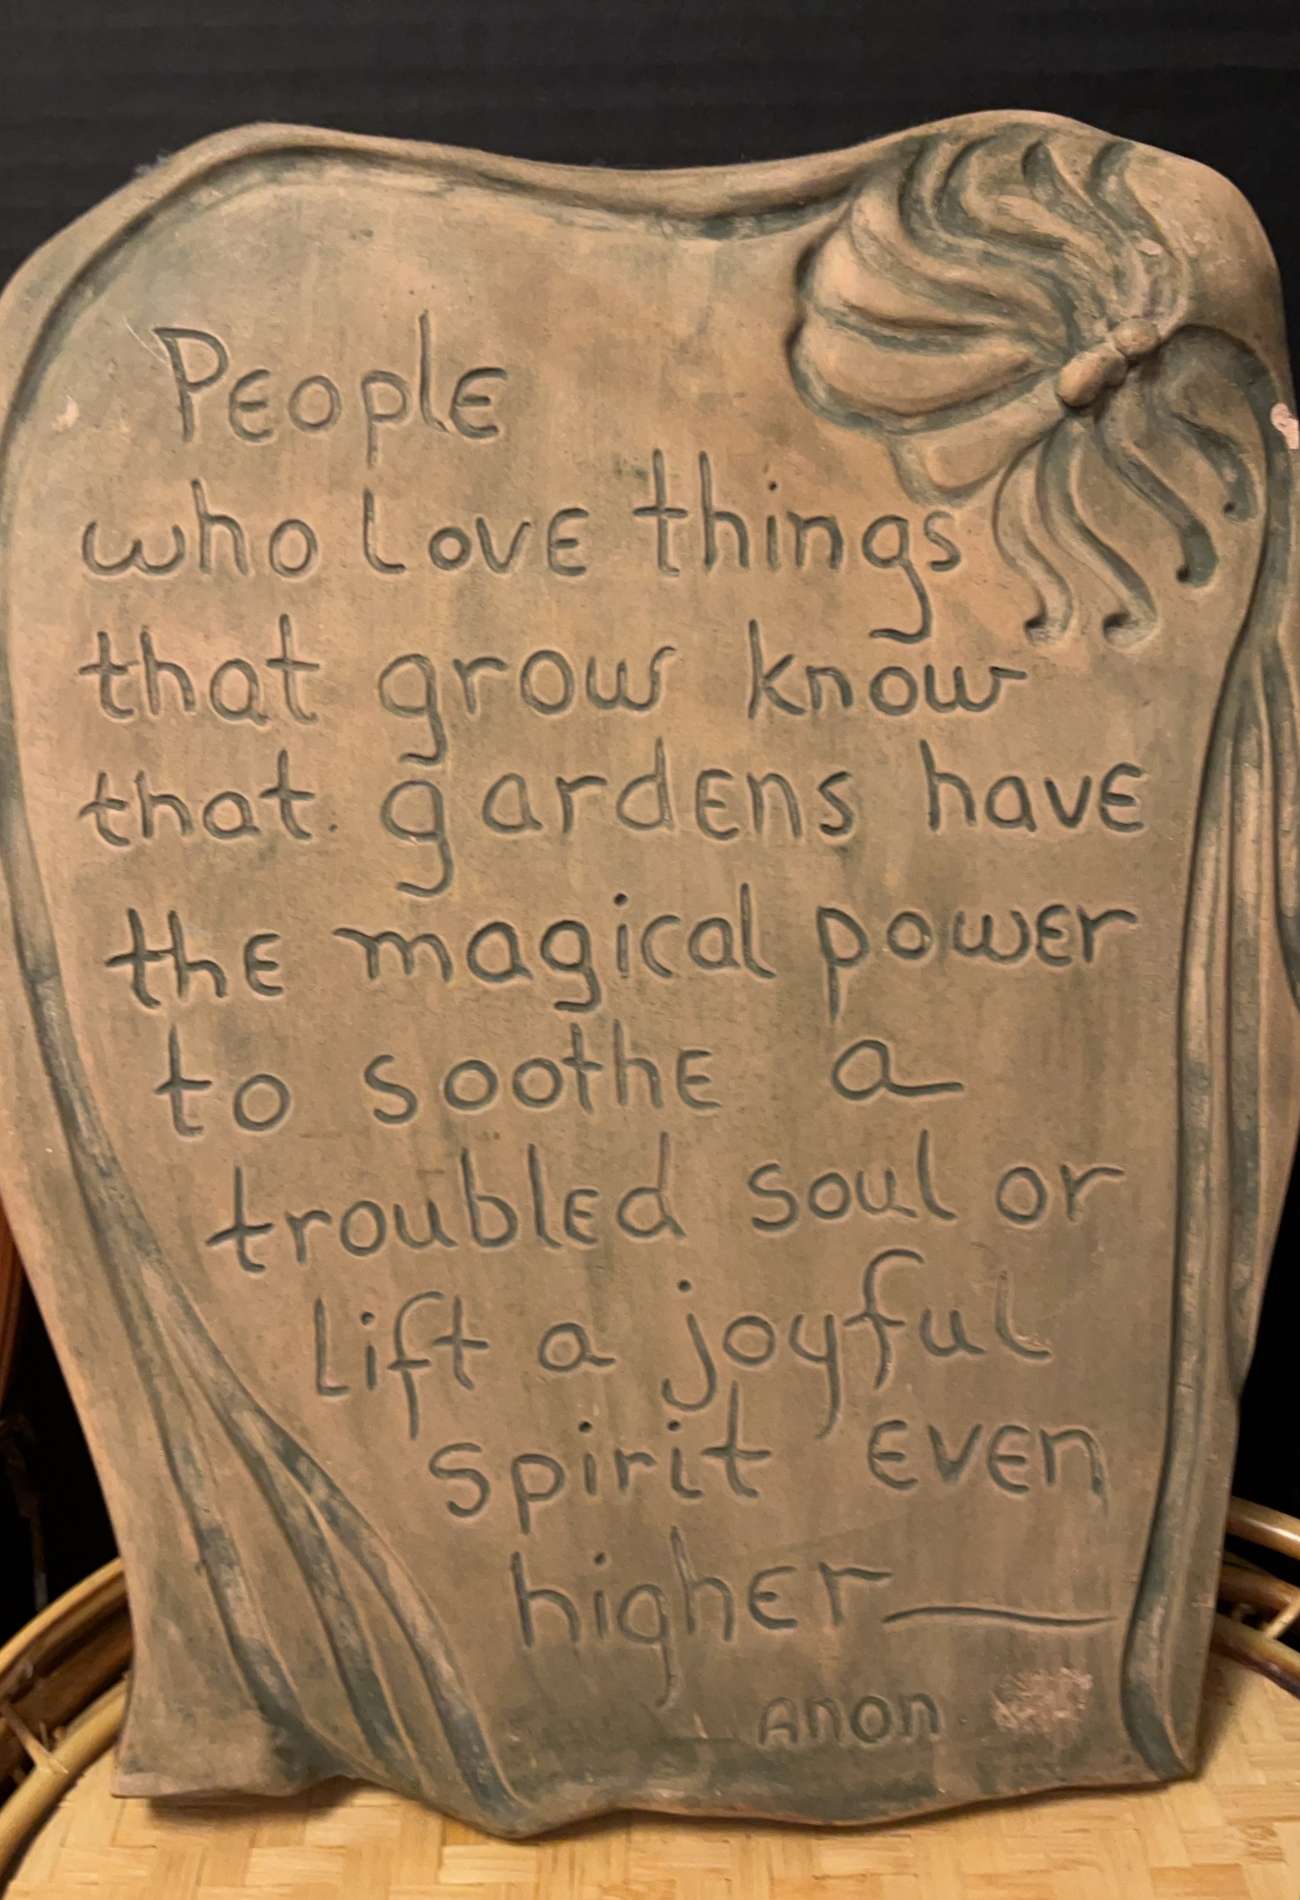 People
who love things
that grow know
that gardens have
the magical power
to soothe a
troubled soul or
lift a joyful
spirit even
higher
anon